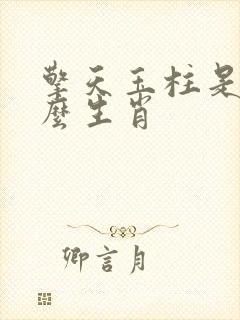 擎天玉柱是
麼生肖
卿言月